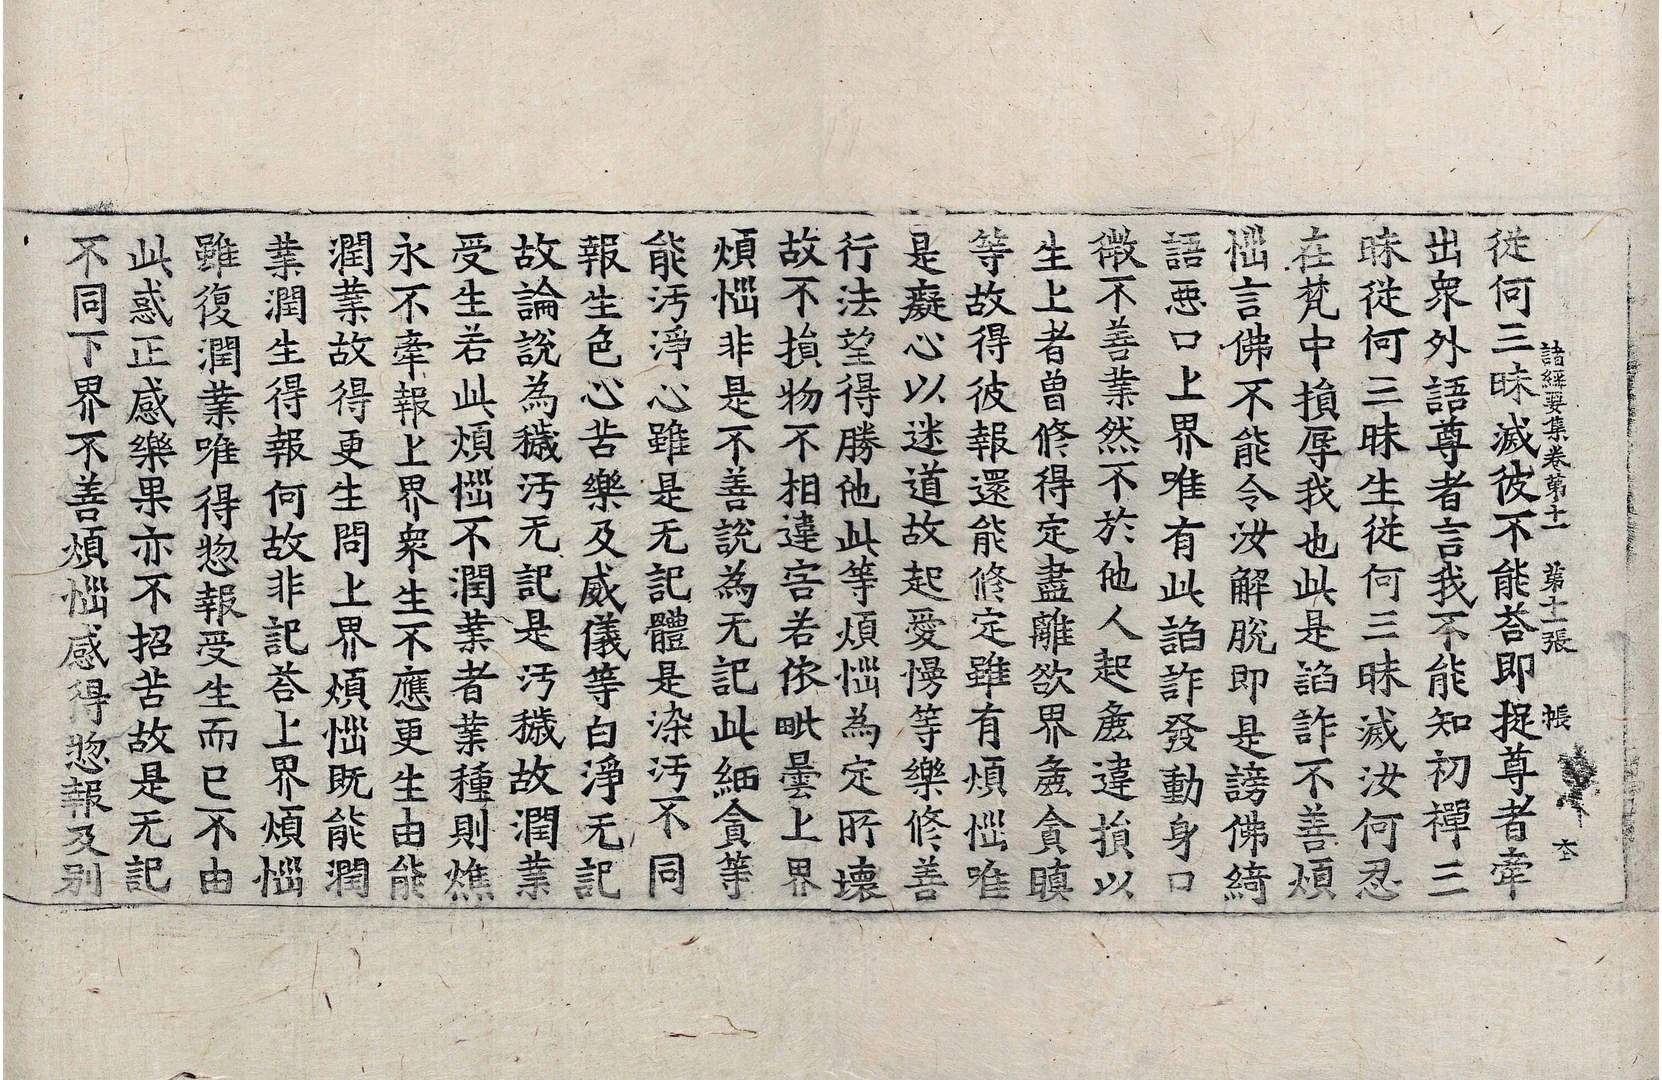 諸經要集卷第十一　第十二張　帳
從何三昧滅彼不能荅即捉尊者牽
出衆外語尊者言我不能知初禪三
昧從何三昧生從何三昧滅汝何忍
在梵中損辱我也此是諂詐不善煩
惱言佛不能令汝解脫即是謗佛綺
語惡口上界唯有此諂詐發動身口
微不善業然不於他人起麁違損以
生上者曽修得定盡離欲界麁貪瞋
等故得彼報還能修定雖有煩惱唯
是癡心以迷道故起愛慢等樂修善
行法望得勝他此等煩惱為定所壞
故不損物不相違害若依毗曇上界
煩惱非是不善說為无記此細貪等
能污淨心雖是无記體是染污不同
報生色心苦樂及威儀等白淨无記
故論說為穢污无記是污穢故潤業
受生若此煩惱不潤業者業種則燋
永不牽報上界衆生不應更生由能
潤業故得更生問上界煩惱既能潤
業潤生得報何故非記荅上界煩惱
雖復潤業唯得惣報受生而已不由
此惑正感樂果亦不招苦故是无記
不同下界不善煩惱感得惣報及别